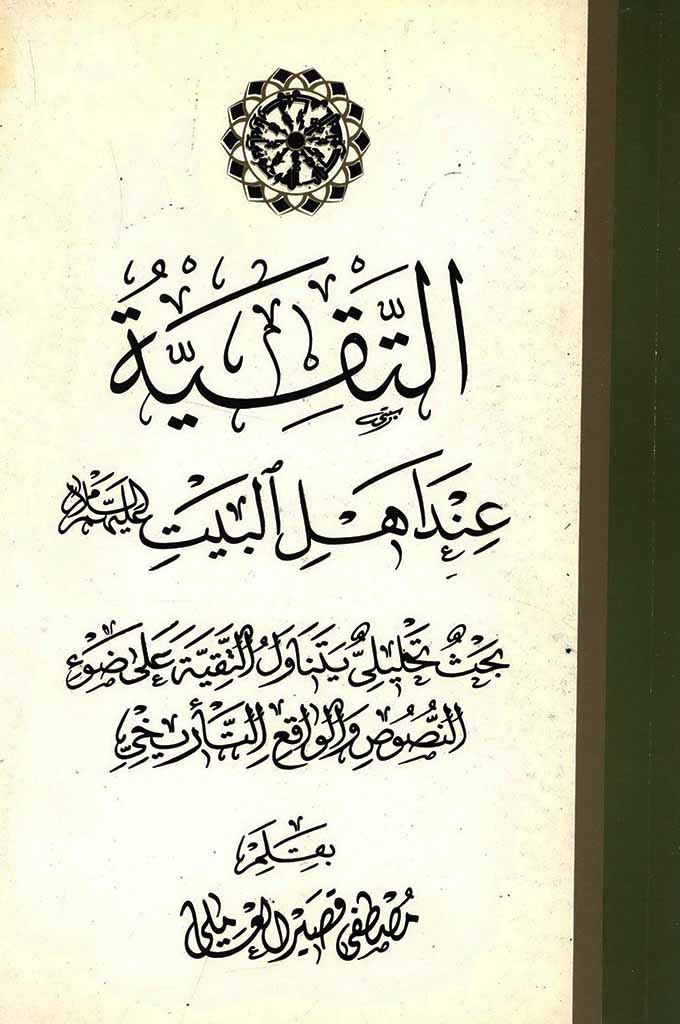 التَّقِيَّةُ
عِنْدَ اهْلِ البَيْتِ عليهم السلام
بَحْثٌ تَحْليليٌّ يَتَنَاوَلُ التَّقِيَّةَ عَلىٰ ضَوْءِ
النُّصُوصِ وَالْوَاقِعِ التَّأريخيِّ
بِقَلَمِ
مُصْطَفى قَصيرِ العَامِلي